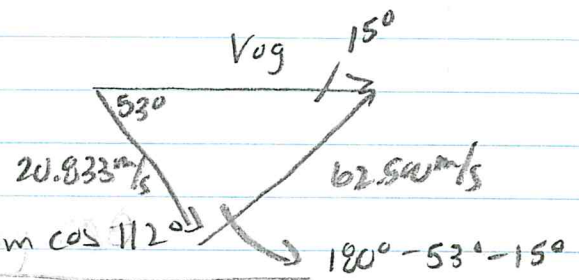 15°
Vog
53°
20.833m/s
62.500m/s
m cos 112°
180°-53°-15°